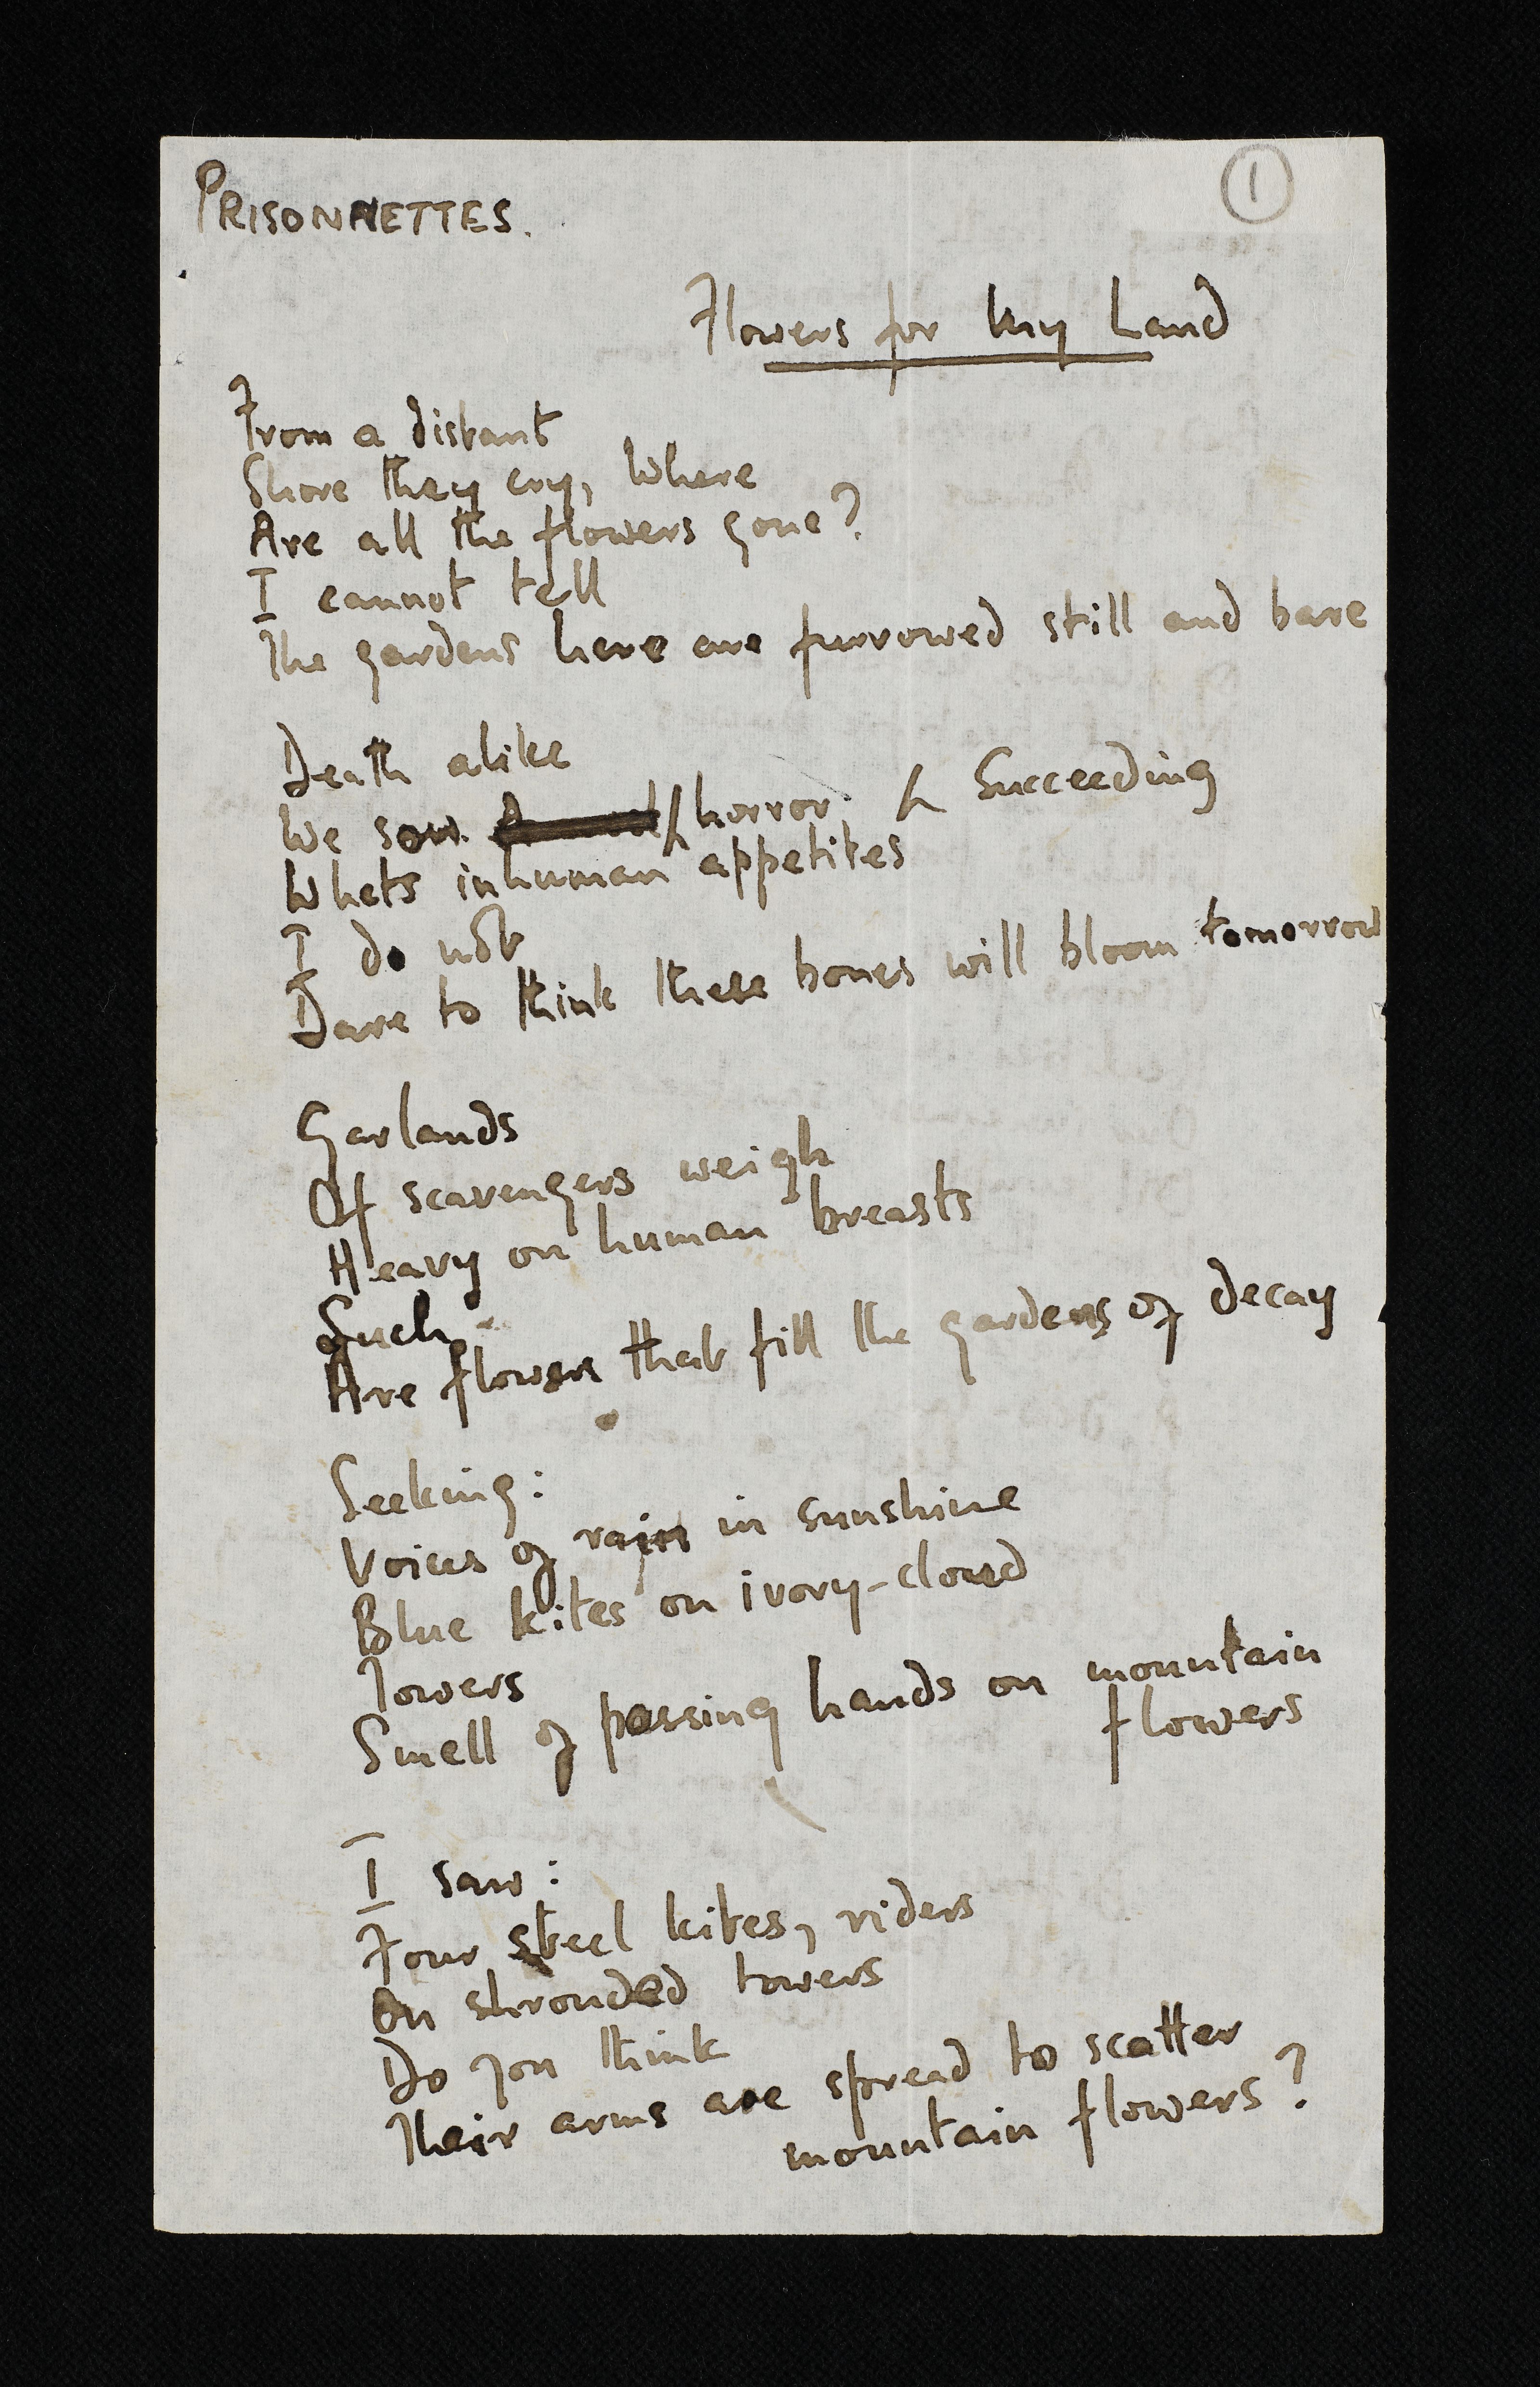 PRISONNETTES.
1
Flowers for My Land
From a distant
Shore they cry, Where
Are all the flowers gone?
I cannot tell
The gardens here are furrowed still and bare
Death alike
We sow. horror. Succeeding
Whets inhuman appetites
I do not
Dare to think these bones will bloom tomorrow
Garlands
Of scavengers weigh
Heavy on human breasts
Such
Are flowers that fill the gardens of decay
Seeking:
Voices of rain in sunshine
Blue kites on ivory-cloud
Towers
Smell of passing hands on mountain
flowers
I saw:
Four steel kites, riders
On shrouded towers
Do you think
Their arms are spread to scatter
mountain flowers?